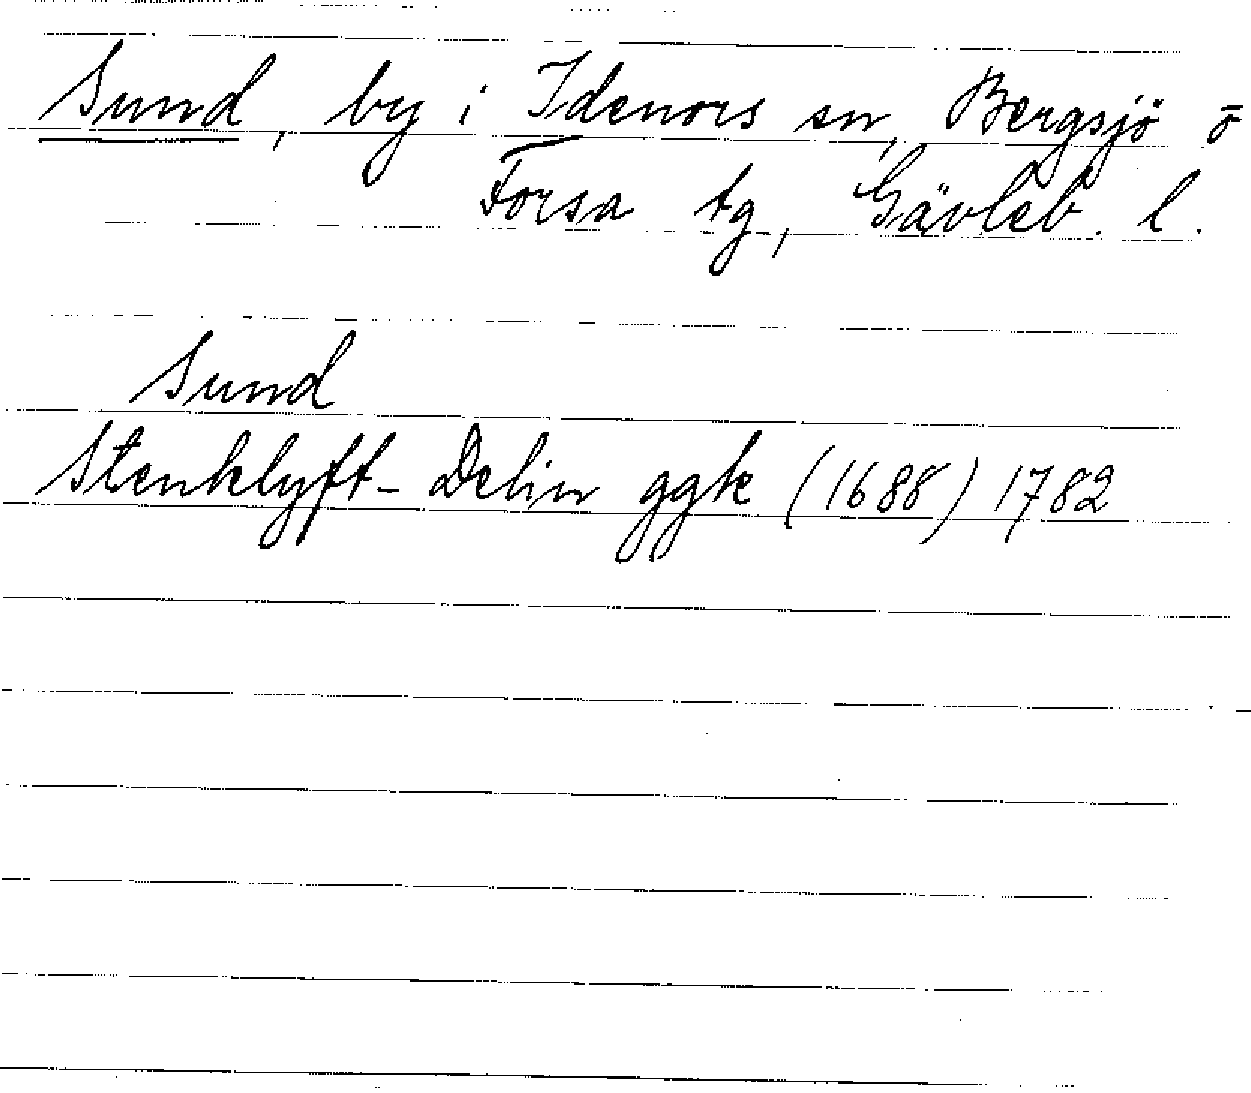 Sund, by i Idenors sn, Bergsjö o
Forsa tg, Gävleb. l.
Sund
Stenklyft- Delin ggk (1688) 1782